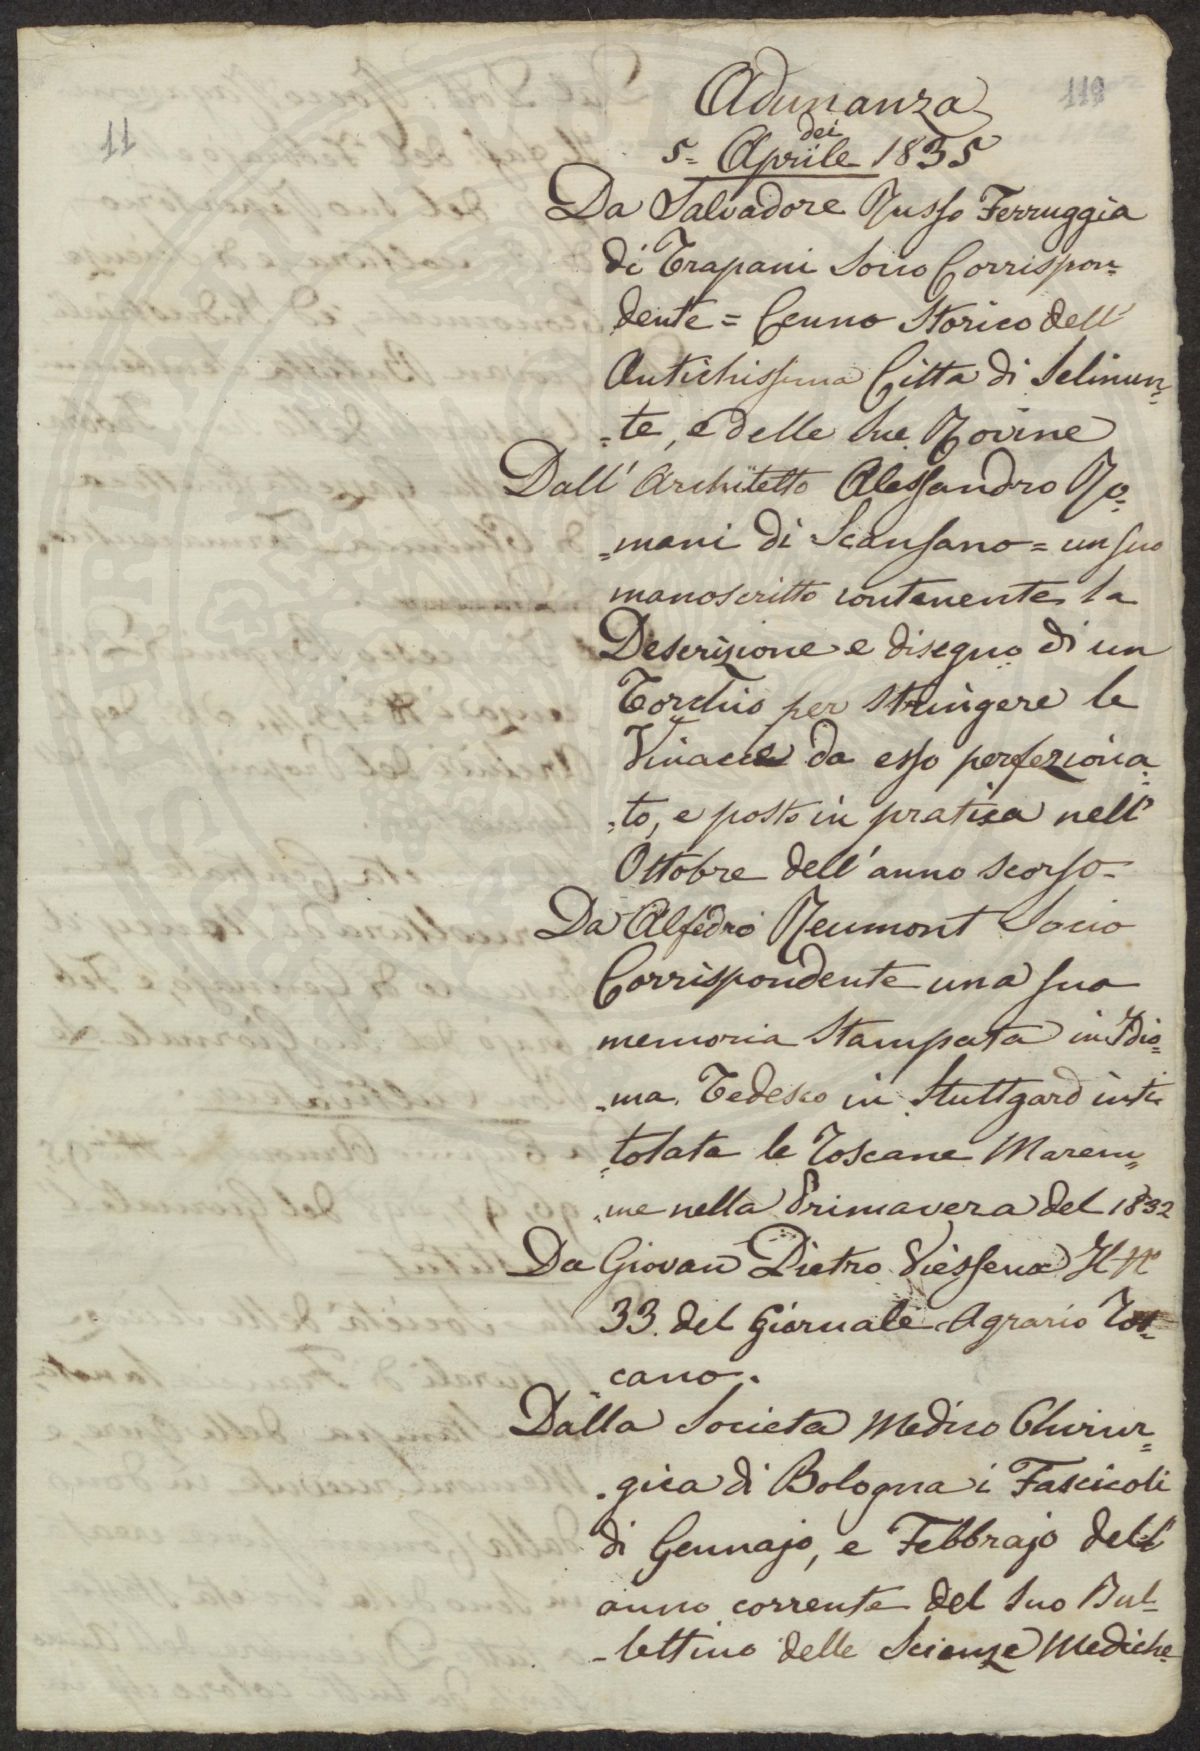 119
11
Adunanza
dei
5= Aprile 1835
Da Salvadore Russo Ferruggia
di Trapani Socio Corrispon=
dente = Cenno Storico dell'
Antichissima Citta di Selinun=
=te, e delle sue Rovine
Dall' Architetto Alessandro Ro=
=mani di Scansano = un suo
manoscritto contenente la
Descrizione e disegno di un
Torchio per stringere le
Vinacce da esso perfeziona=
=to, e posto in pratica nell'
Ottobre dell'anno scorso-
Da Alfedro Reumont Socio
Corrispondente una sua
memoria Stampata in Idio=
=ma Tedesco in Stuttgard inti
=tolata le Toscane Marem=
=me nella Primavera del 1832
Da Giovan Pietro Viesseux Il N°
33. del Giornale Agrario Tos=
cano.
Dalla Societa Medico Chirur=
=gica di Bologna i Fascicoli
di Gennajo, e Febbrajo dell'
anno corrente del suo Bul=
-lettino delle Scienze Mediche